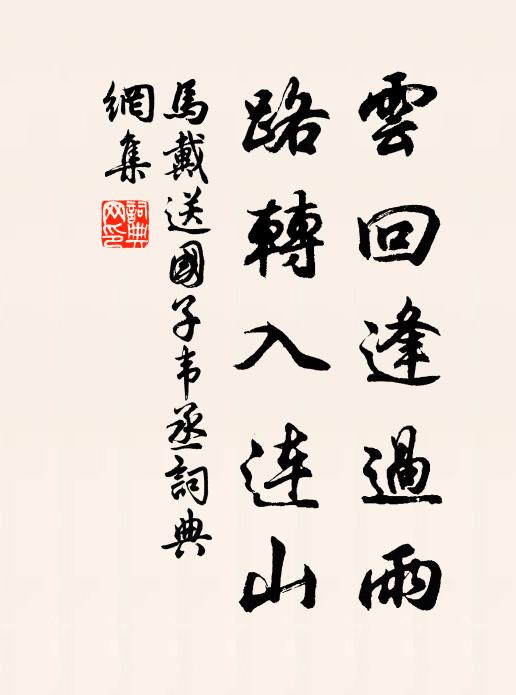 雲回逢過雨
路轉入連山
馬戴送國子韦丞詞典
網集
詞典
网印